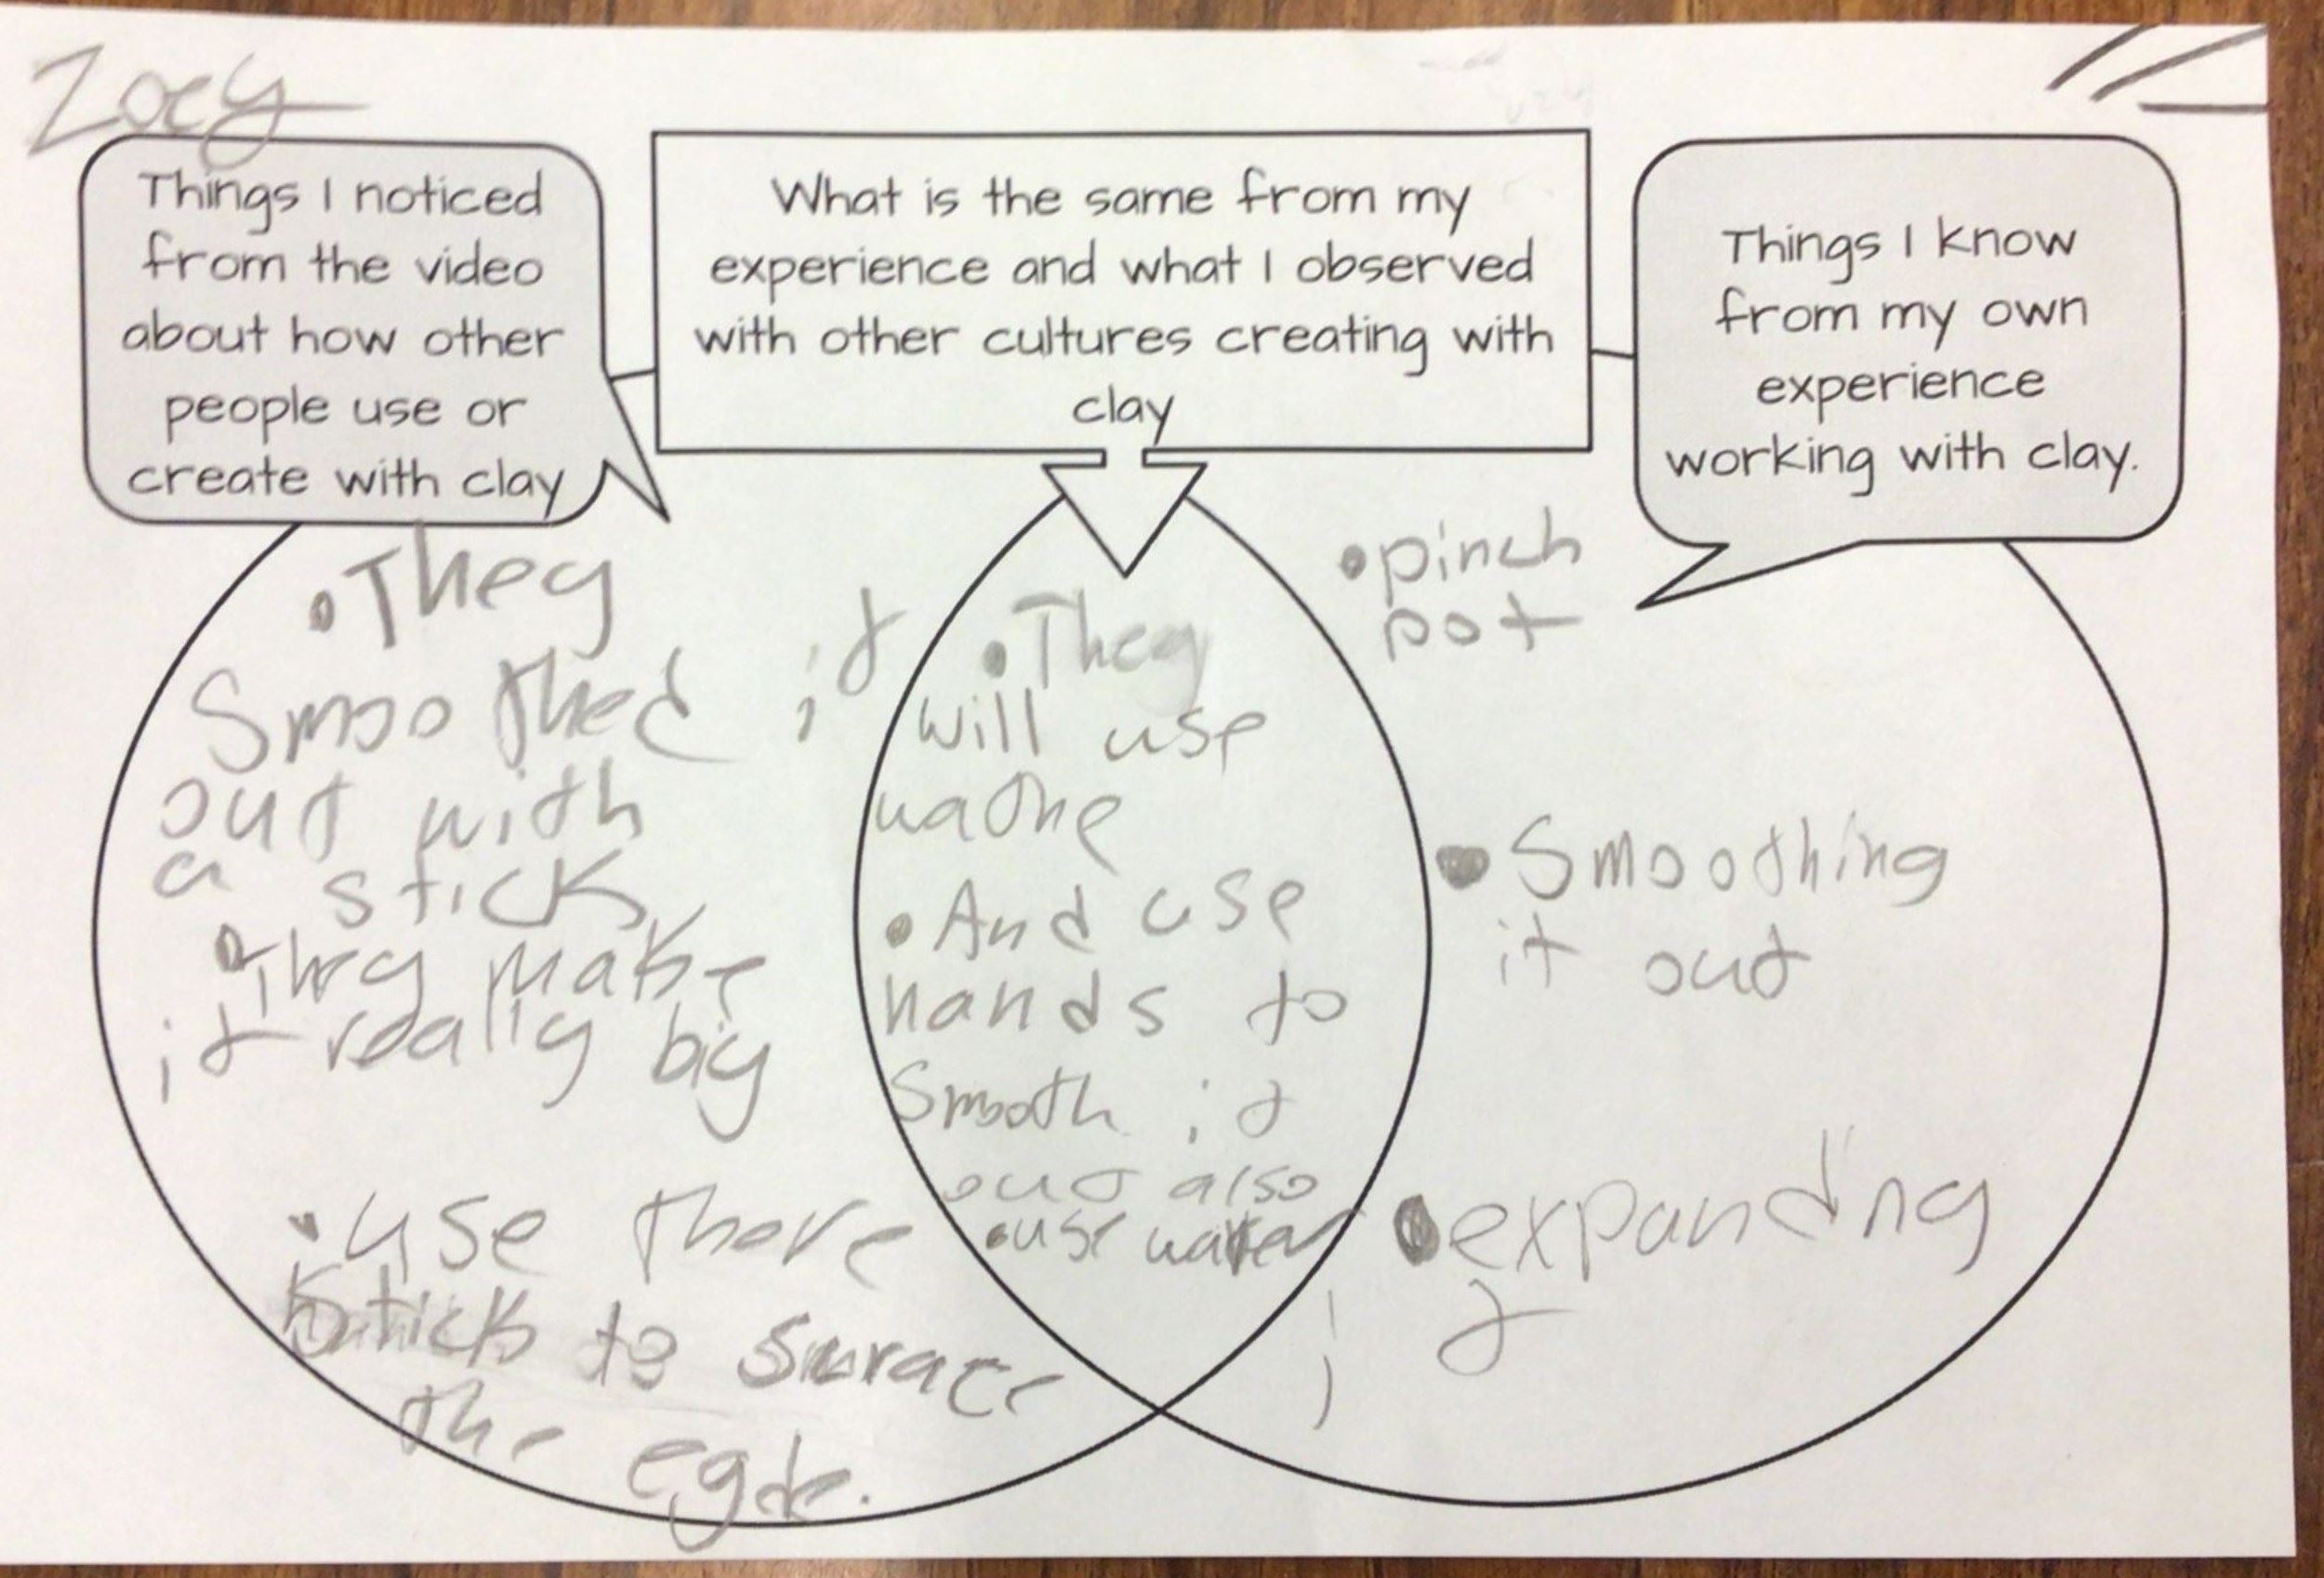 Zoey
Things I noticed
from the video
about how other
people use or
create with clay
What is the same from my
experience and what I observed
with other cultures creating with
clay
Things I know
from my own
experience
working with clay.
•They
Smoothed it
out with
a stick
•They make
it really big
•use there
stick to surace
the egde.
•They
will use
•And use
hands to
Smooth it
out also
•use water
•pinch
pot
•Smoothing
it out
•expandng